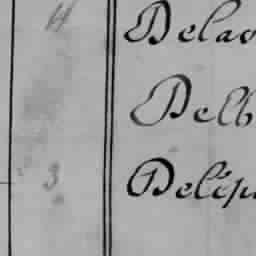 4 Delav
Delb
3 Delip